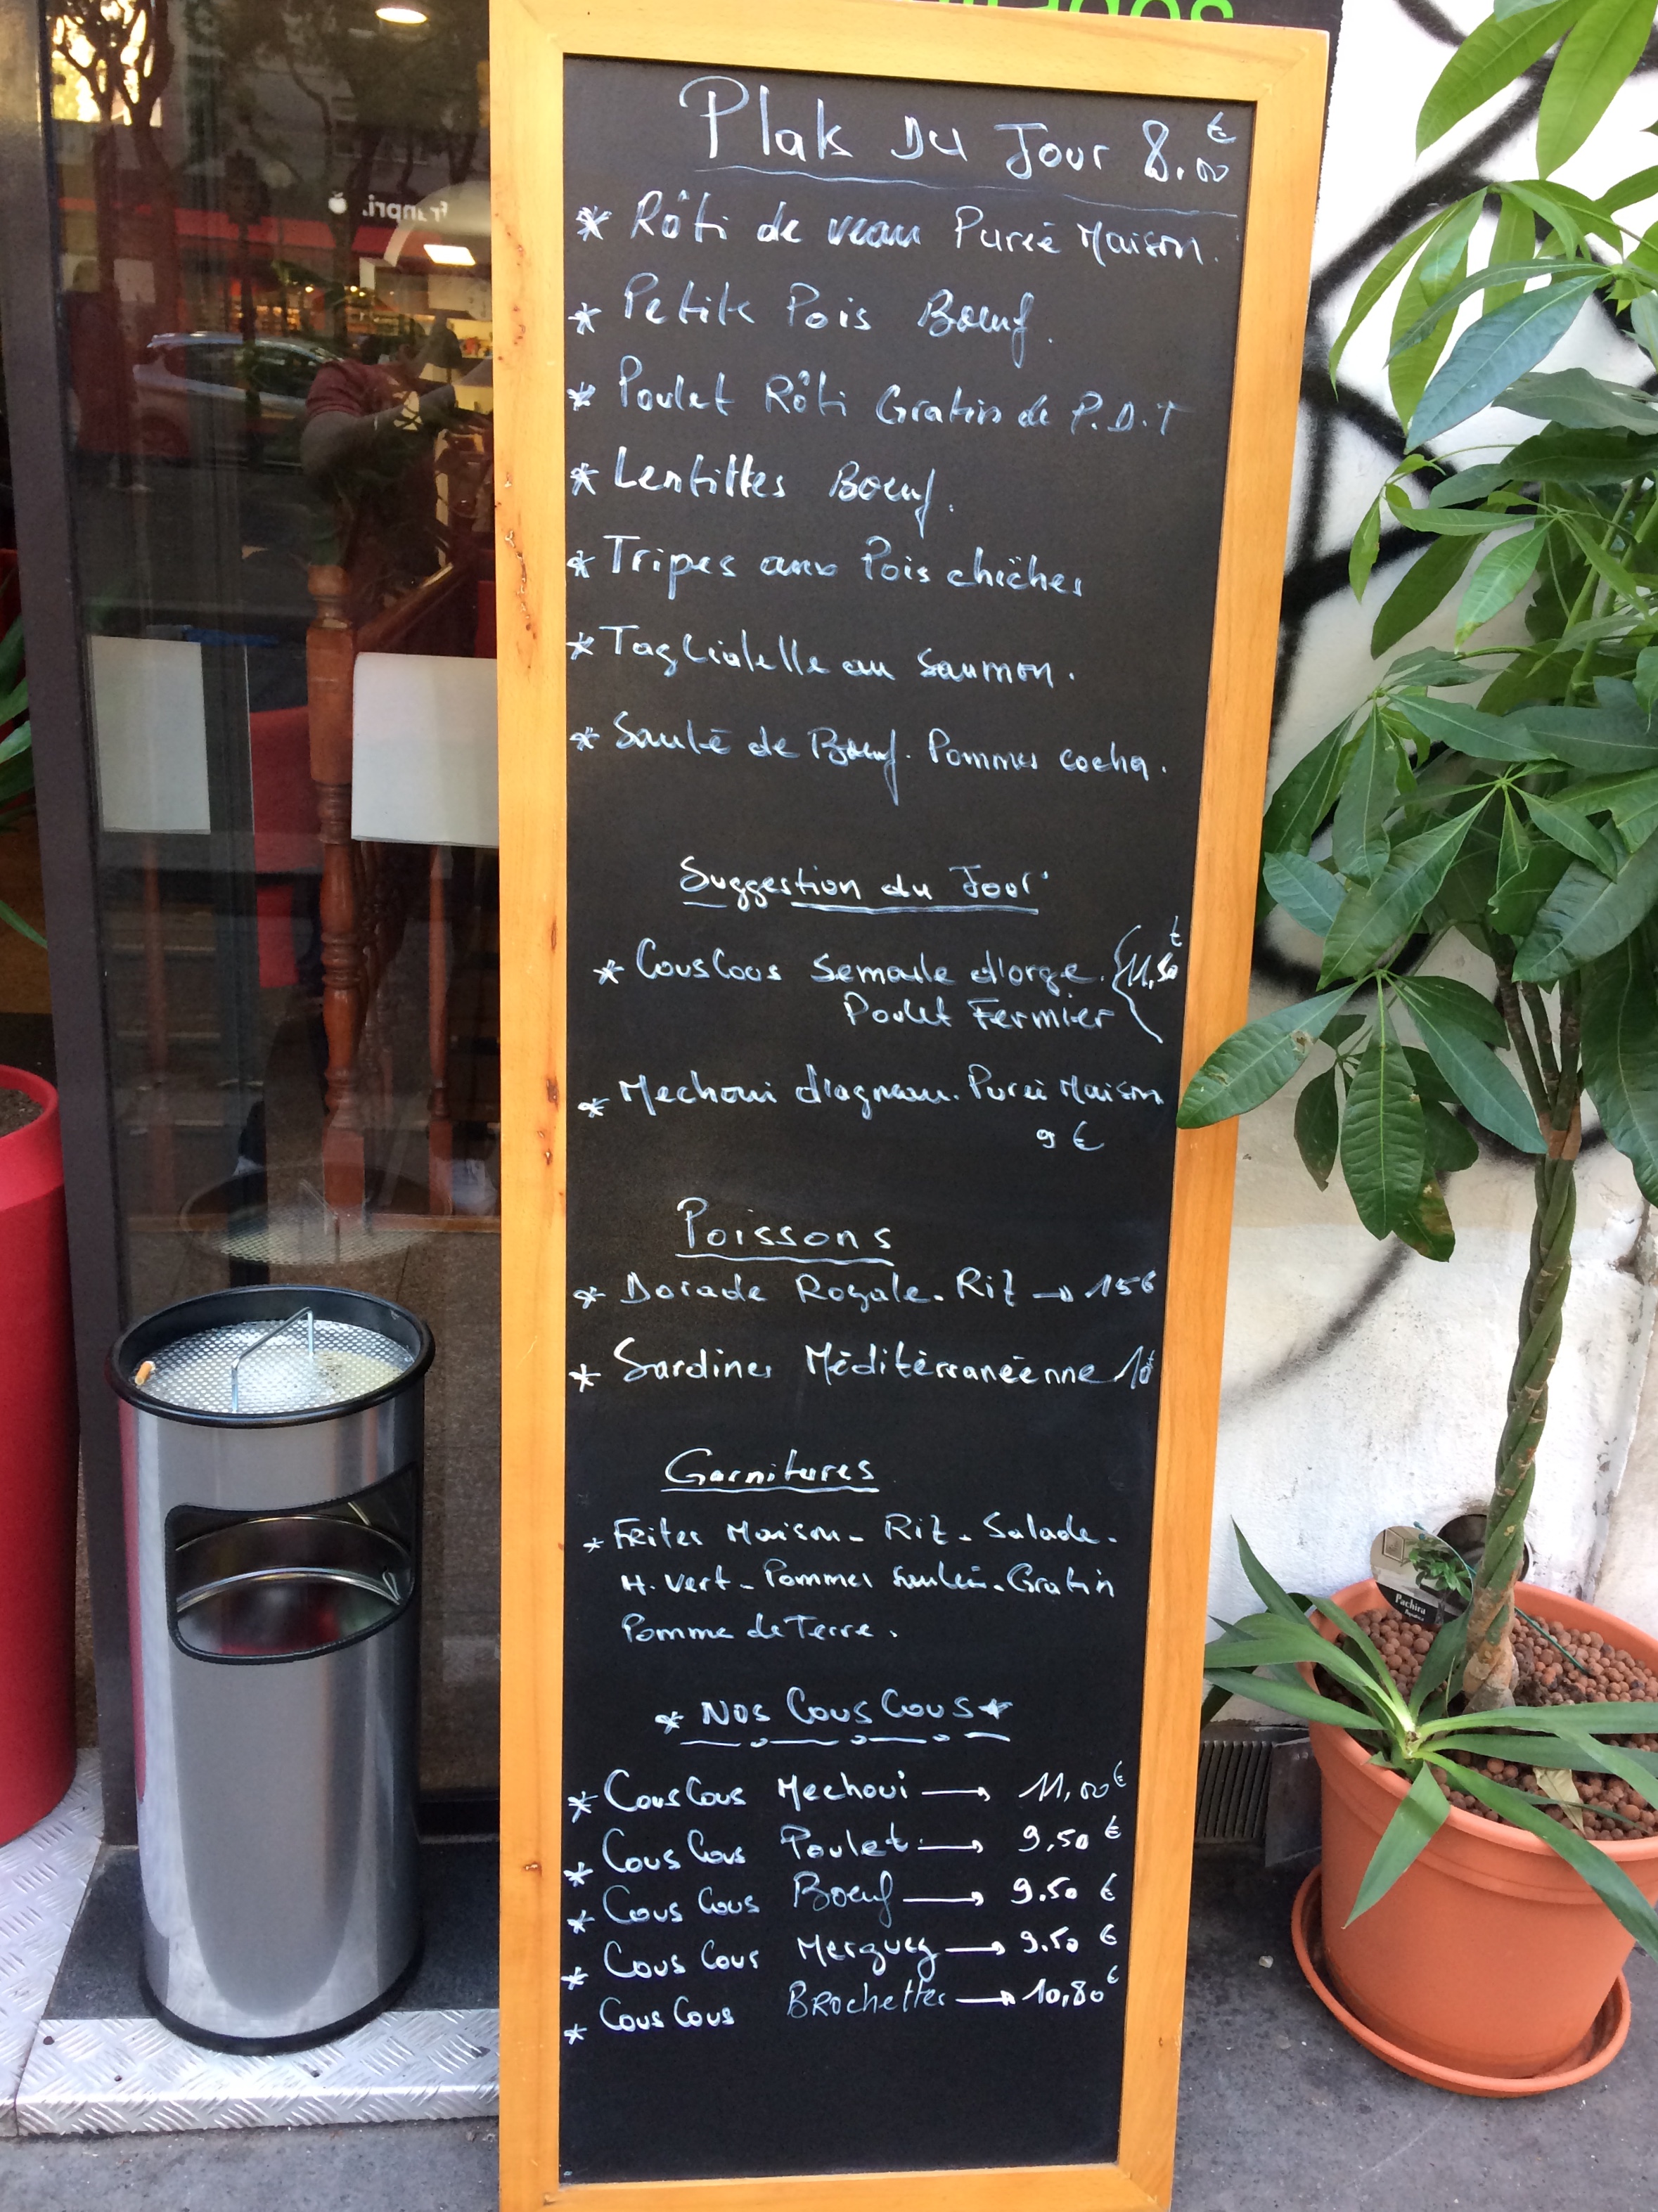 Plats Du Jour 8.00 €
* Rôti de veau Purée Maison.
* Petits Pois Boeuf.
* Poulet Rôti Gratin de P.D.T
* Lentilles Boeuf.
* Tripes aux Pois chiches
* Tagliatelle au Saumon.
* Sauté de Boeuf. Pommes cocha.
Suggestion du Jour
* CousCous Semoule d'orge. 11,50 €
Poulet Fermier
* Mechoui d'agneau. Purée Maison
9 €
Poissons
* Dorade Royale. Riz → 15€
* Sardines Méditérranéenne 10€
Garnitures
* Frites Maison - Riz - Salade.
H. vert - Pommes Sautées. Gratin
Pomme de Terre.
* NOS CousCous *
* CousCous Mechoui → 11,00 €
* CousCous Poulet → 9,50 €
* CousCous Boeuf → 9.50 €
* CousCous Merguez → 9.50 €
* CousCous BRochettes → 10,80 €
franpri.
Pachira